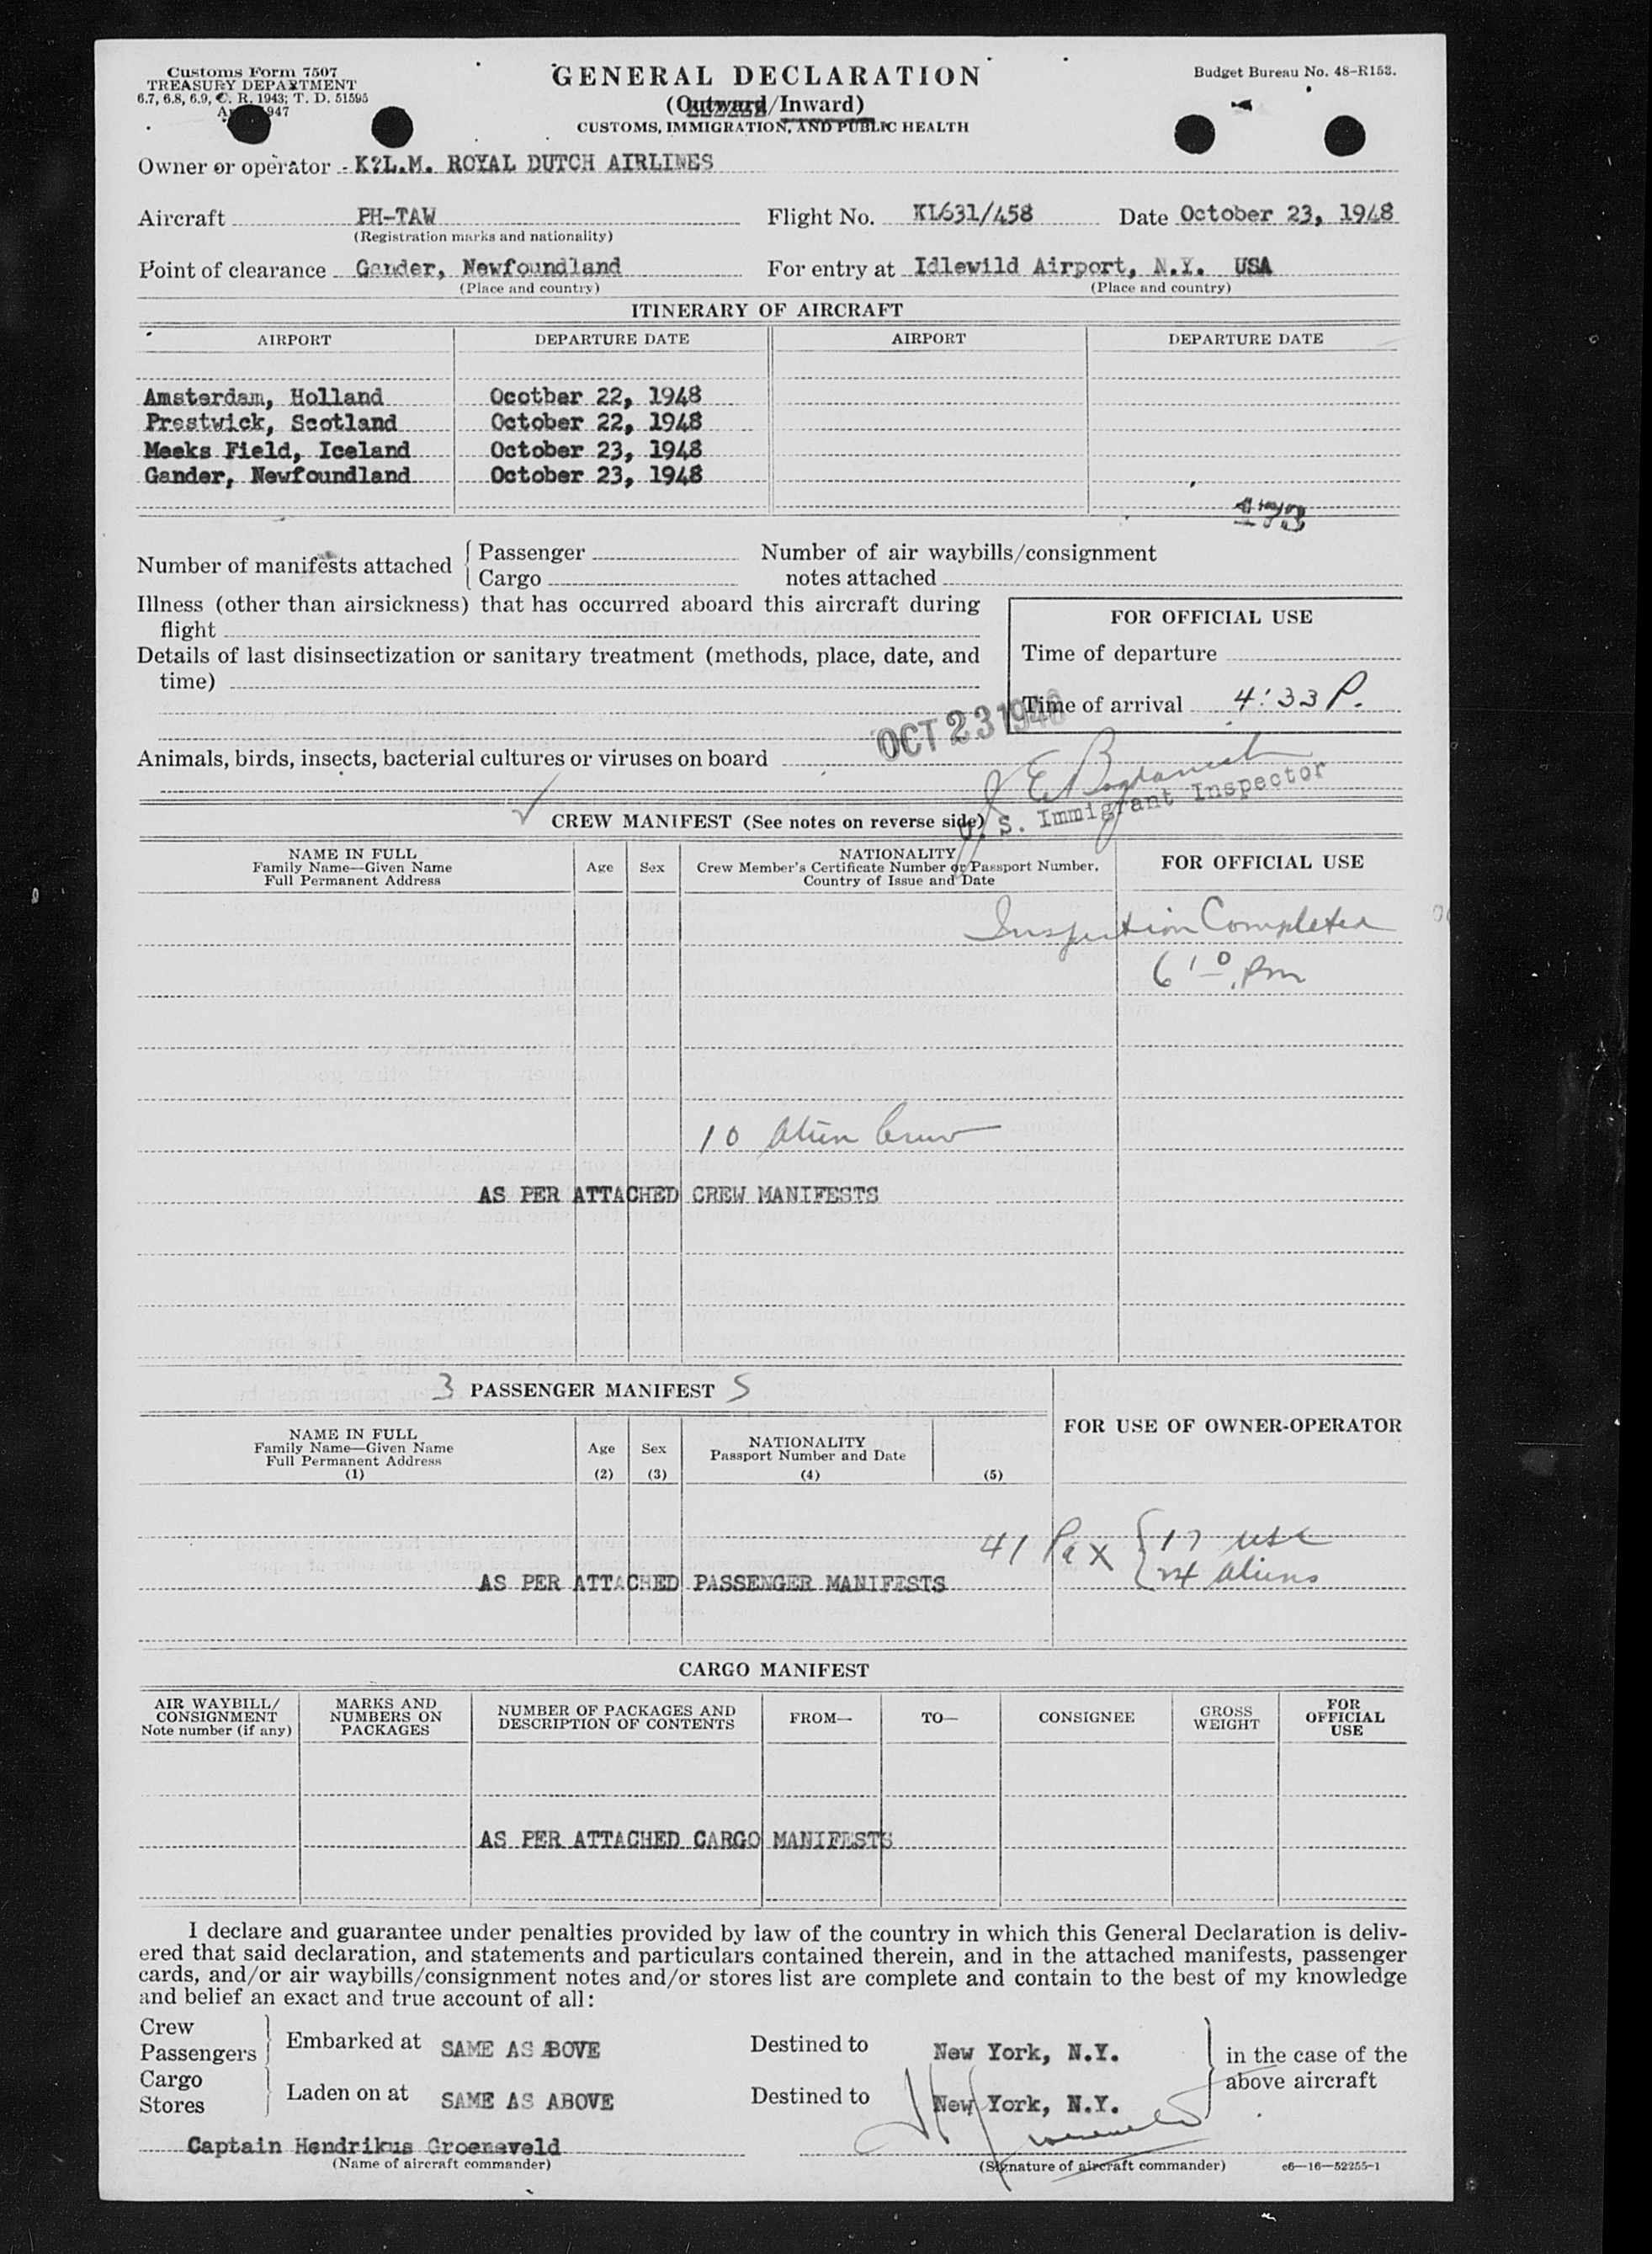 Customs Form 7507
TREASURY DEPARTMENT
6.7, 6.8, 6.9, C. R. 1943; T. D. 51595
947
GENERAL DECLARATION
(Outward/Inward)
CUSTOMS, IMMIGRATION, AND PUBLIC HEALTH
Budget Bureau No. 48-R153.
Owner or operator K?L.M. ROYAL DUTCH AIRLINES
Aircraft PH-TAW Flight No. KL631/458 Date October 23, 1948
(Registration marks and nationality)
Point of clearance Gander, Newfoundland For entry at Idlewild Airport, N.Y. USA
(Place and country) (Place and country)
ITINERARY OF AIRCRAFT
AIRPORT DEPARTURE DATE AIRPORT DEPARTURE DATE
Amsterdam, Holland Ocotber 22, 1948
Prestwick, Scotland October 22, 1948
Meeks Field, Iceland October 23, 1948
Gander, Newfoundland October 23, 1948
Number of manifests attached { Passenger Number of air waybills/consignment
Cargo notes attached
Illness (other than airsickness) that has occurred aboard this aircraft during
flight
Details of last disinsectization or sanitary treatment (methods, place, date, and
time)
FOR OFFICIAL USE
Time of departure
Time of arrival 4:33 P.
OCT 23 1948
Animals, birds, insects, bacterial cultures or viruses on board
U. S. Immigrant Inspector
CREW MANIFEST (See notes on reverse side)
NAME IN FULL
Family Name—Given Name
Full Permanent Address
Age Sex
NATIONALITY
Crew Member's Certificate Number or Passport Number,
Country of Issue and Date
FOR OFFICIAL USE
Inspection Completed
6 10 pm
10 Alien Crew
AS PER ATTACHED CREW MANIFESTS
3 PASSENGER MANIFEST 5
NAME IN FULL
Family Name—Given Name
Full Permanent Address
(1)
Age
(2)
Sex
(3)
NATIONALITY
Passport Number and Date
(4)
(5)
FOR USE OF OWNER-OPERATOR
41 Pax { 17 USC
24 Aliens
AS PER ATTACHED PASSENGER MANIFESTS
CARGO MANIFEST
AIR WAYBILL/
CONSIGNMENT
Note number (if any)
MARKS AND
NUMBERS ON
PACKAGES
NUMBER OF PACKAGES AND
DESCRIPTION OF CONTENTS
FROM—
TO—
CONSIGNEE
GROSS
WEIGHT
FOR
OFFICIAL
USE
AS PER ATTACHED CARGO MANIFESTS
I declare and guarantee under penalties provided by law of the country in which this General Declaration is deliv-
ered that said declaration, and statements and particulars contained therein, and in the attached manifests, passenger
cards, and/or air waybills/consignment notes and/or stores list are complete and contain to the best of my knowledge
and belief an exact and true account of all:
Crew
Passengers } Embarked at SAME AS BOVE Destined to New York, N.Y.
Cargo
Stores } Laden on at SAME AS ABOVE Destined to New York, N.Y.
} in the case of the
above aircraft
Captain Hendrikus Groeneveld
(Name of aircraft commander) (Signature of aircraft commander) c6—16—52255-1